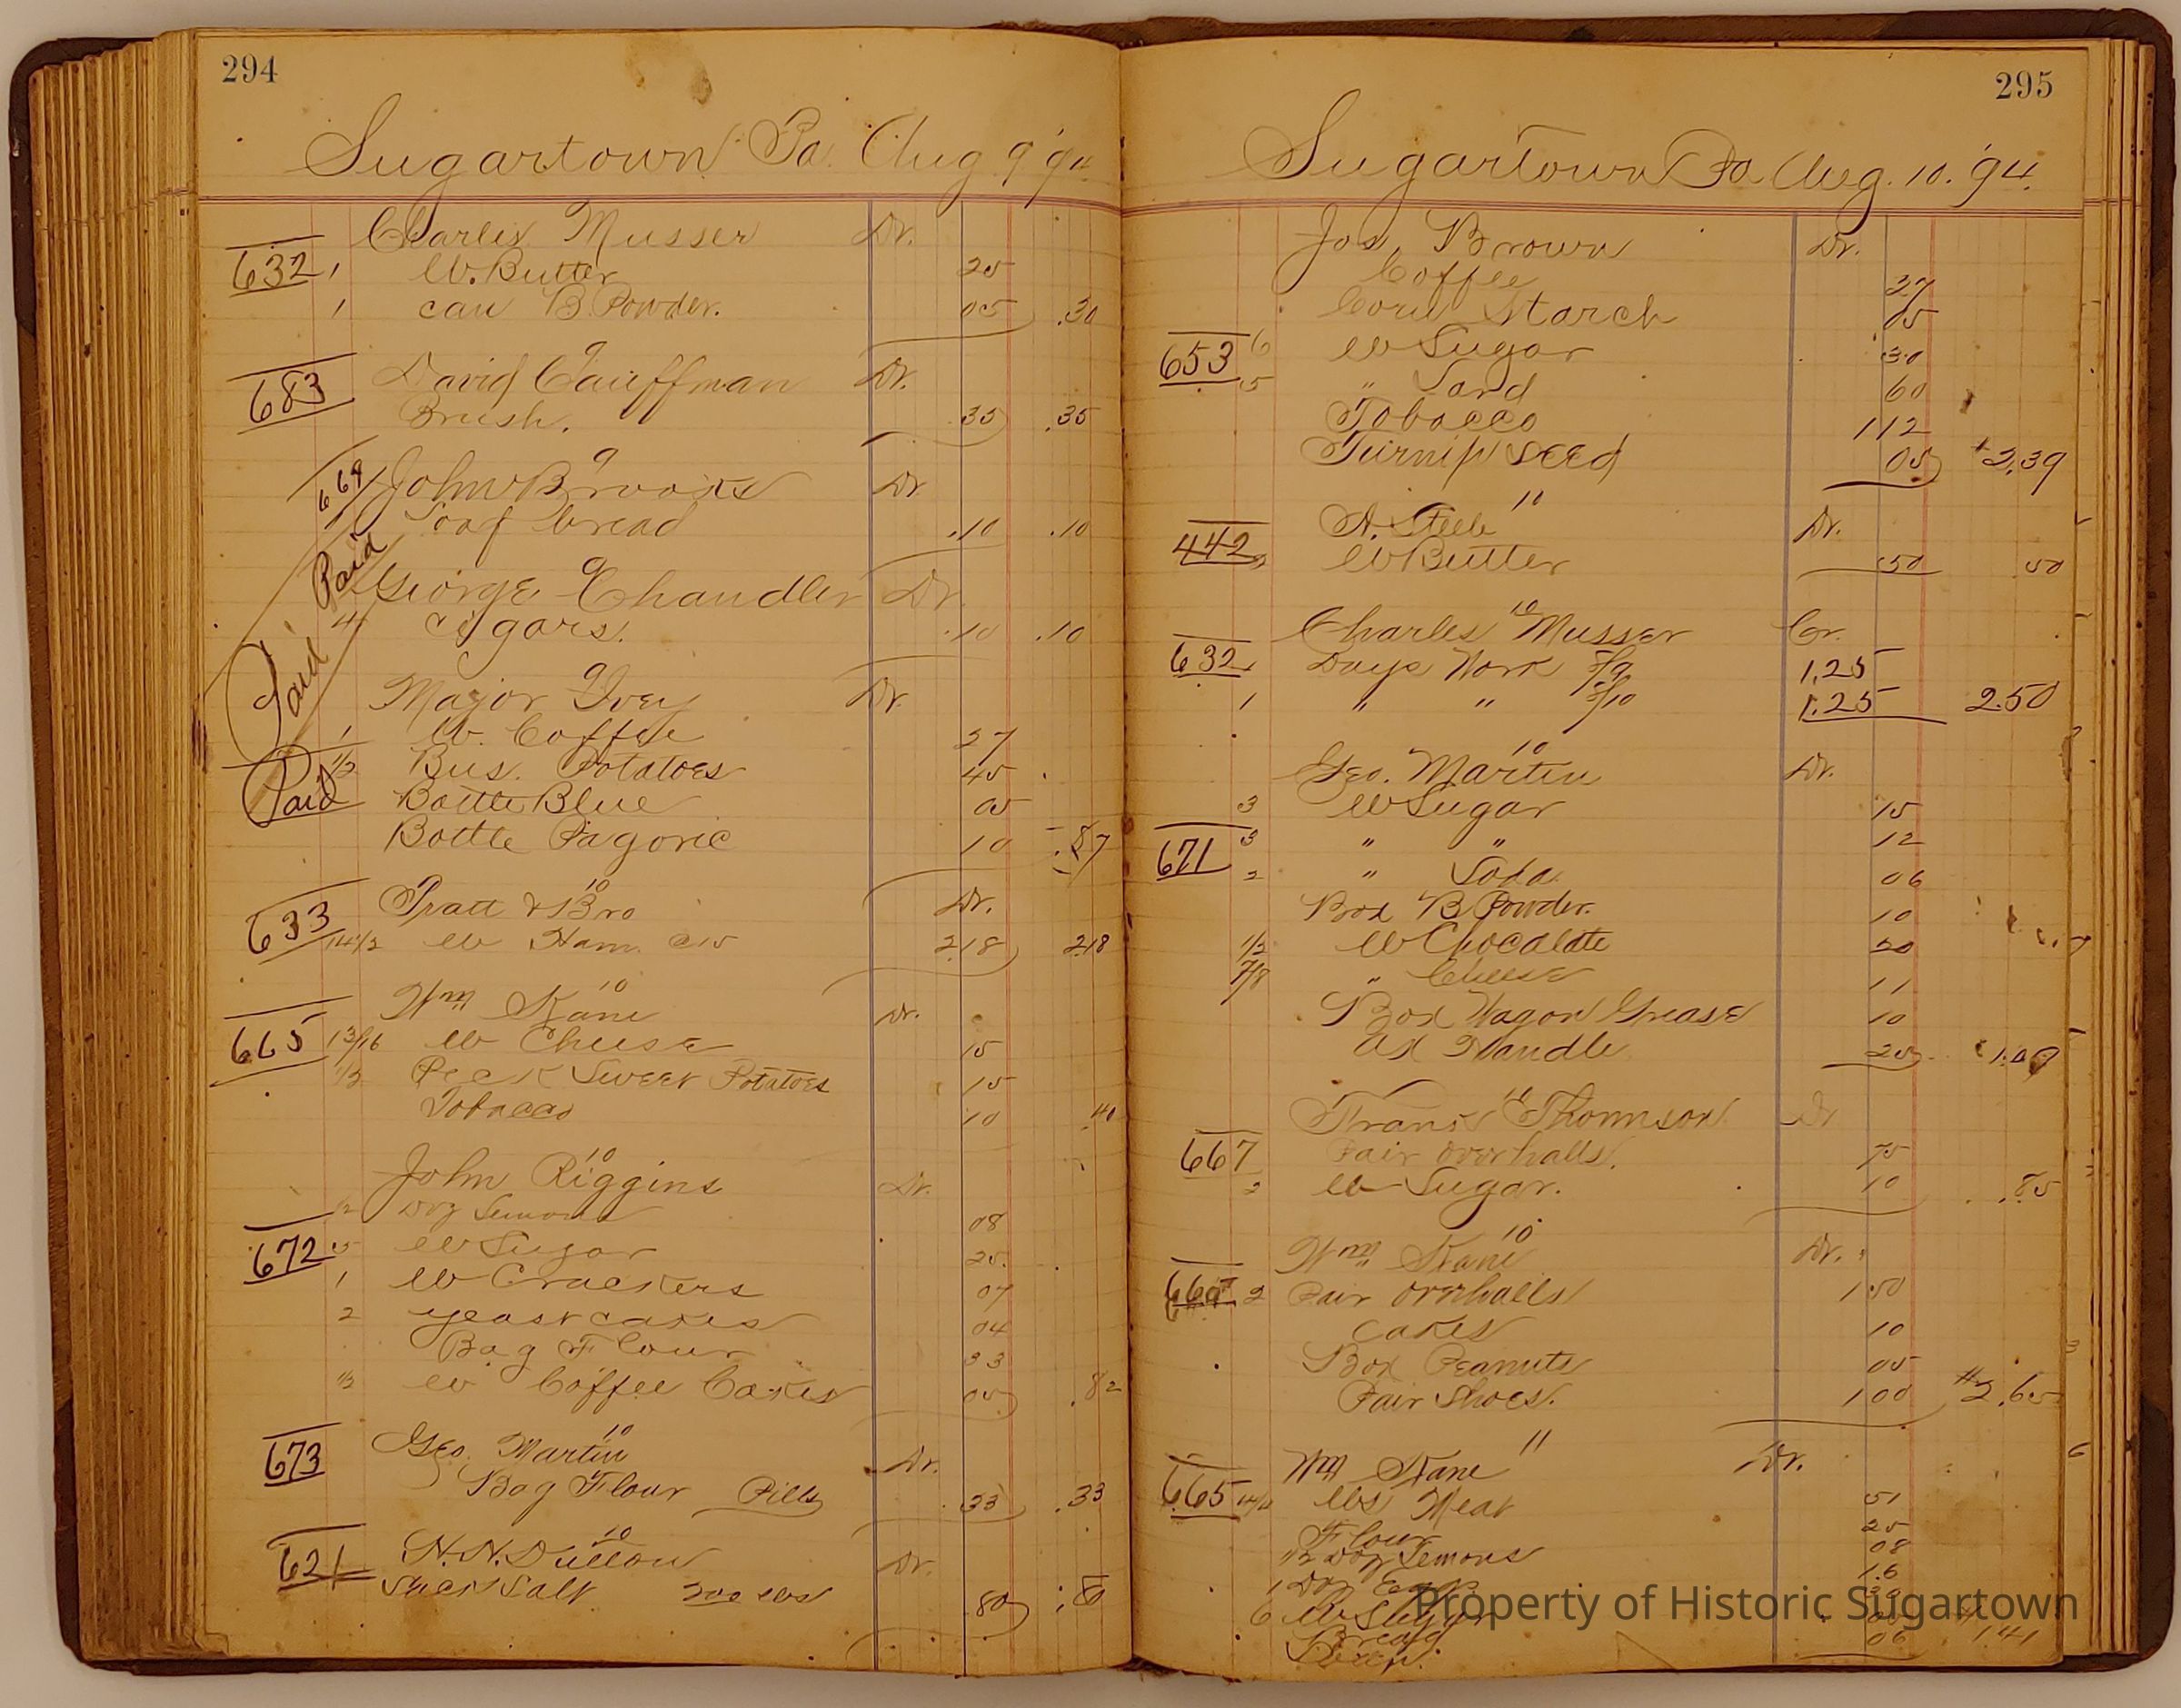 294
Sugartown Pa. Aug 9 '94
Charles Musser Dr.
632 1 lb. Butter 25
1 can B. Powder. 05 .30
9
683 David Cauffman Dr.
Brush. 35 .35
9
669 John Brooks Dr
Paid Loaf bread .10 .10
9
George Chandler Dr.
Paid 4 cigars. .10 .10
9
Major Ivey Dr.
1 lb. Coffee 27
1/2 Bus. Potatoes 45
Paid Bottle Blue 05
Bottle Pagoric 10 .87
10
633 Pratt & Bro Dr.
14 1/2 lb Ham @15 2.18 2.18
10
Wm Kane Dr.
665 13/16 lb Cheese 15
1/2 Peck Sweet Potatoes 15
Tobacco 10 .40
10
John Riggins Dr.
1/2 Doz Lemons 08
672 5 lb Sugar 25.
1 lb Crackers 07
2 yeast cakes 04
Bag Flour 33
1/2 lb Coffee Cakes 05 .82
10
673 Geo. Martin Dr.
Bag Flour Pills .33 .33
10
621 Dr.
Sack Salt 200 lbs .80 .80
295
Sugartown Pa Aug. 10. '94.
Jos, Brown Dr.
Coffee 27
Corn Starch 05
653 6 lb Sugar 30
5 " Lard 60
Tobacco 112
Turnip seed 05 2.39
10
442 A. Steele Dr.
2 lb Butter 50 50
10
Charles Musser Cr.
632 1 Days Work 8/9 1.25
1 " " 8/10 1.25 2.50
10
Geo. Martin Dr.
3 lb Sugar 15
671 3 " " 12
2 " Soda 06
Box B Powder. 10
1/2 lb Chocalate 20
7/8 " Cheese 11
Box Wagon Grease 10
Ax Handle 25 1.09
10
Thomson Dr
667 Pair overhalls. 75
2 lb Sugar. 10 .85
10
Wm Kane Dr.
665 2 Pair overhalls 1.50
Cakes 10
Box Peanuts 05
Pair Shoes. 100 $2.65
11
Wm Kane Dr.
665 lbs Meat 51
Flour 25
1/2 Doz Lemons 08
1 Doz Eggs 16
6 lb Sugar 30
Bread 05
06 1.41
Property of Historic Sugartown